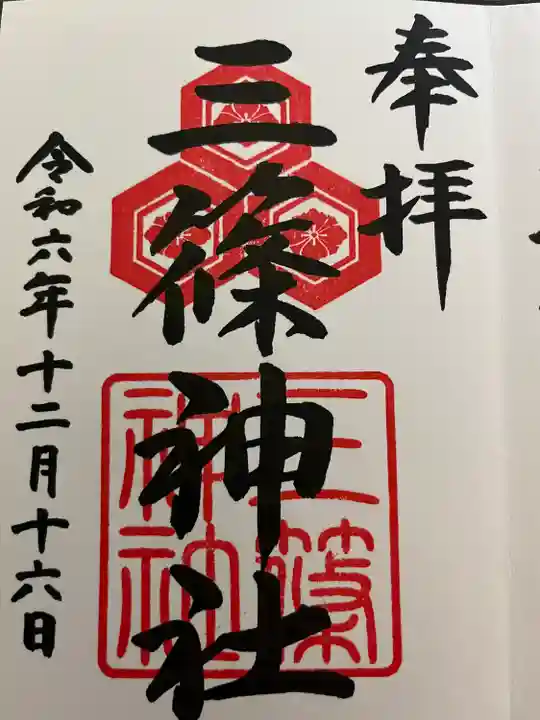 奉拝
三篠神社
三篠
神社
令和六年十二月十六日